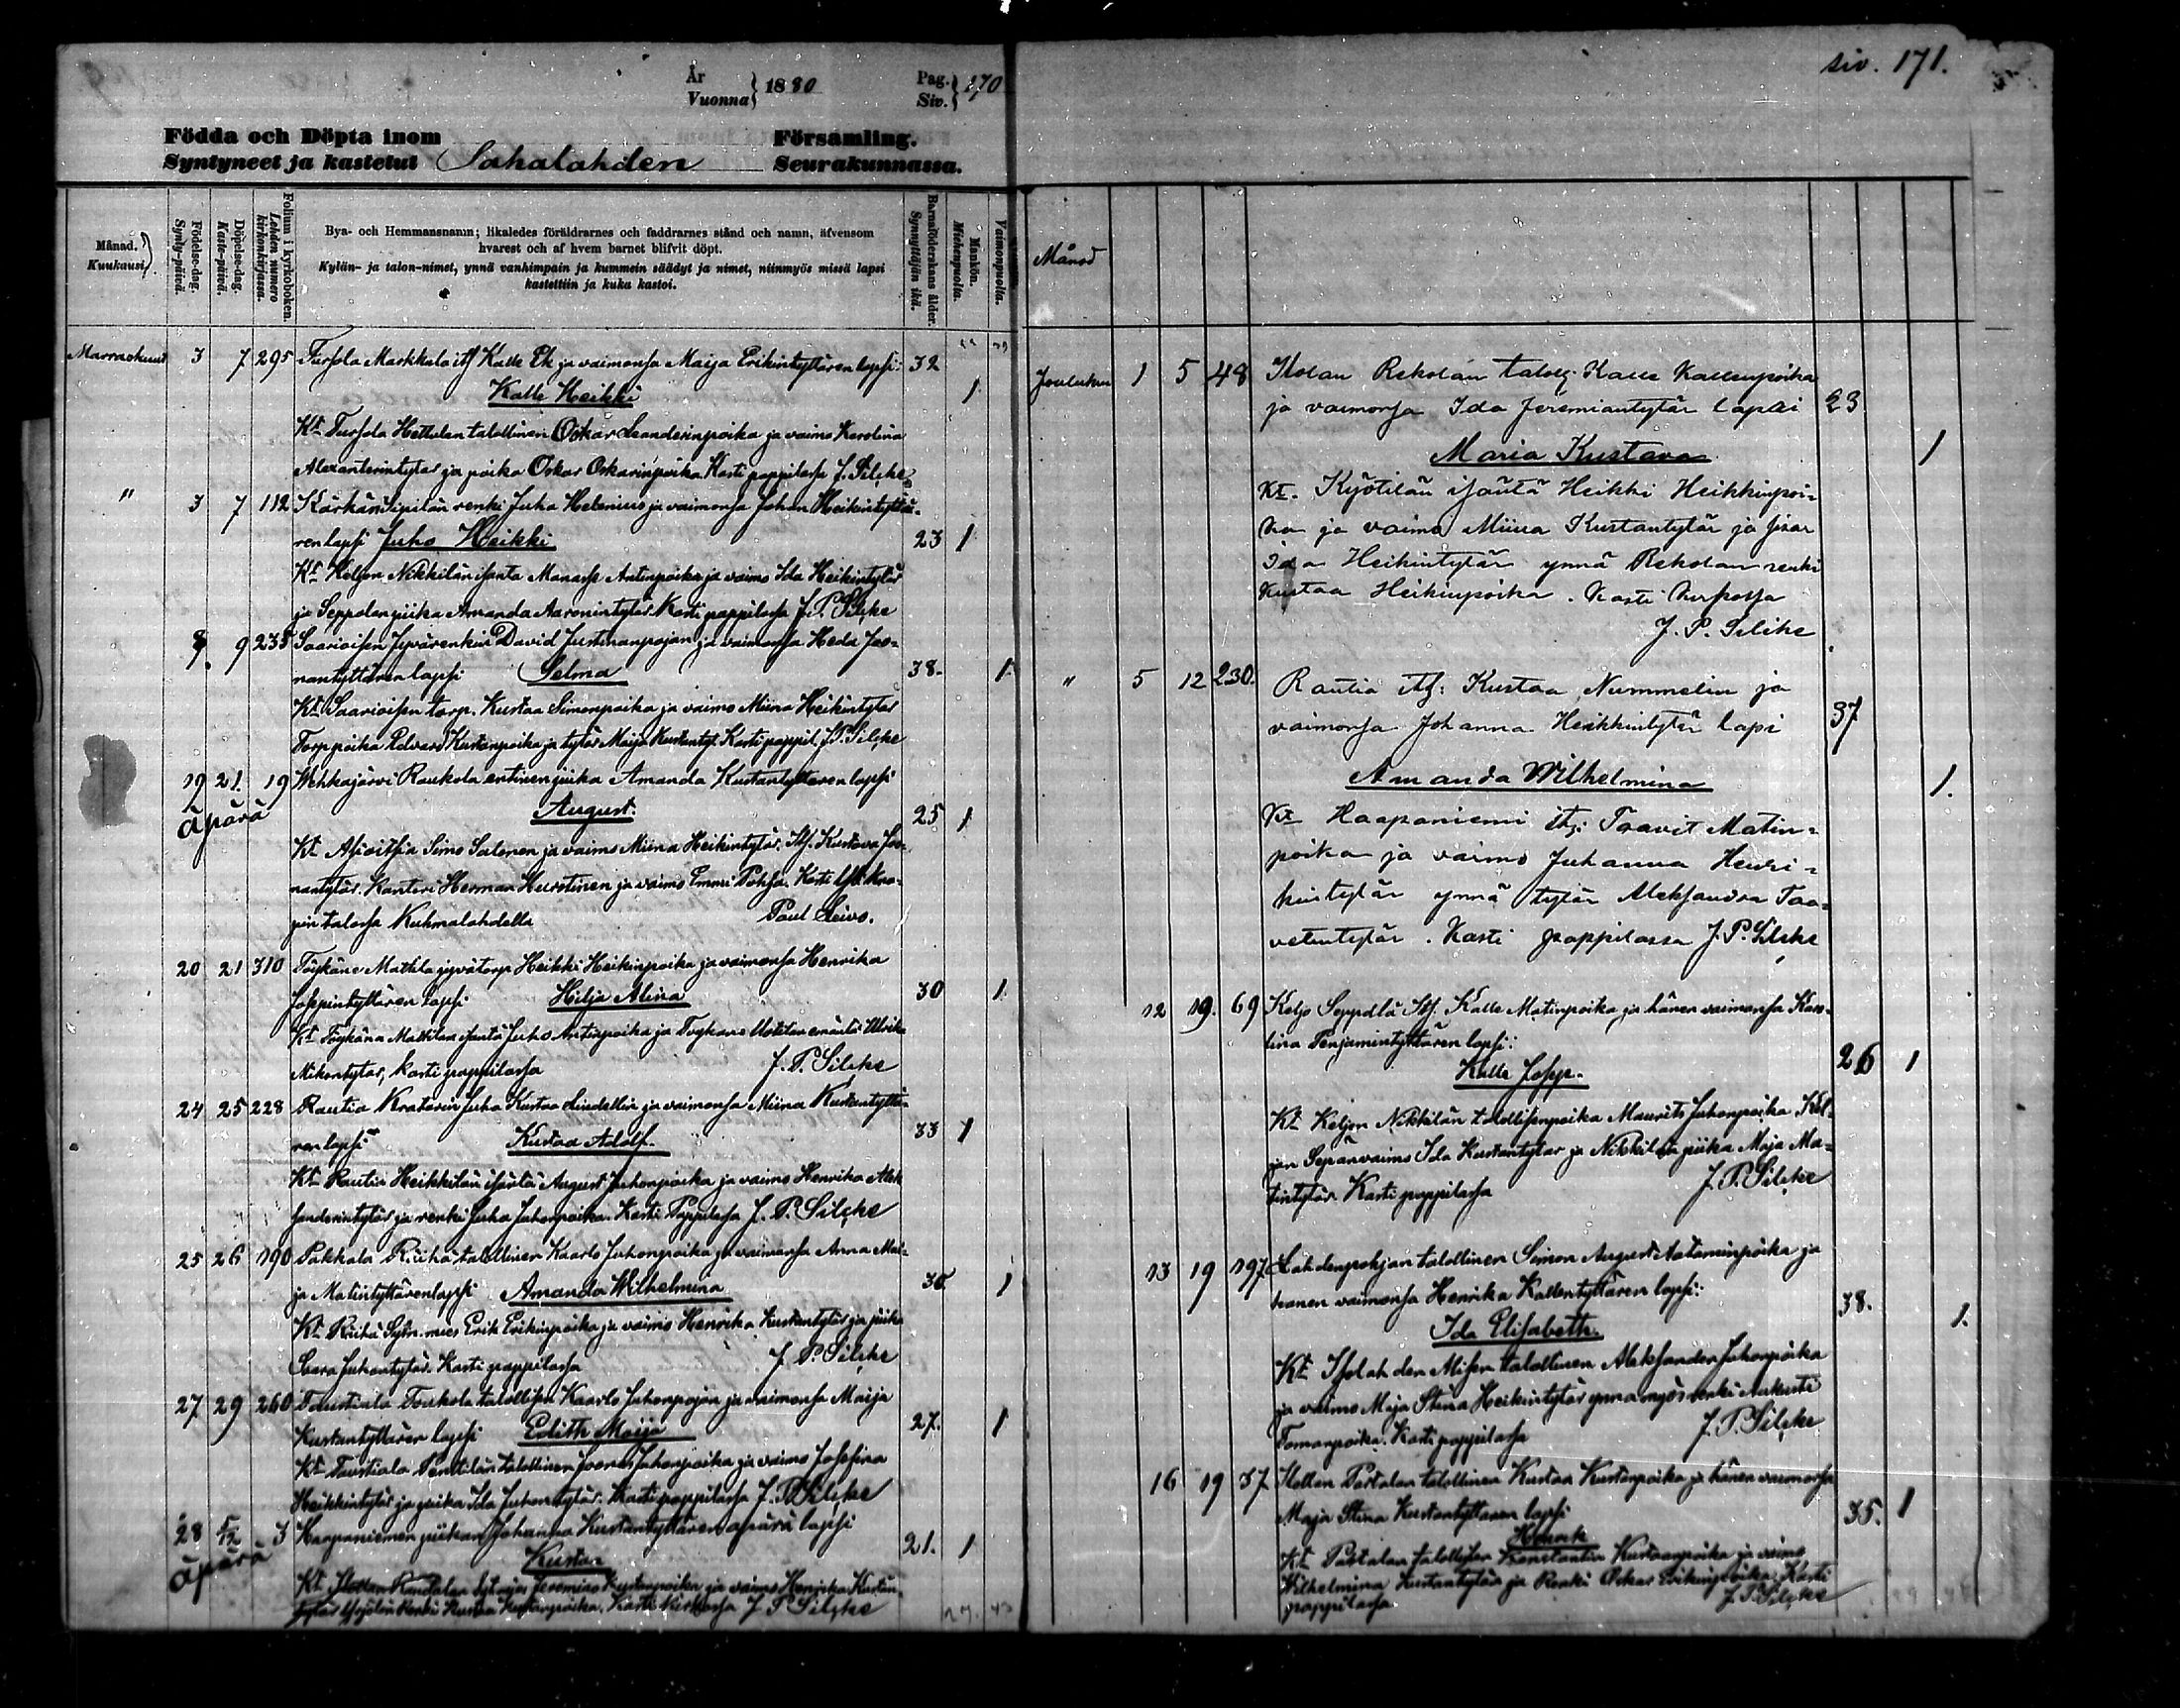 År
Vuonna } 1880
Pag.
Siv. } 170
Födda och Döpta inom Församling.
Syntyneet ja kastetut Sahalahden Seurakunnassa.
Månad.
Kuukausi.
Födelse-dag.
Synty-päivä.
Döpelse-dag.
Kaste-päivä.
Folium i kyrkoboken.
Lehden numero kirkonkirjassa.
Bya- och Hemmansnamn; likaledes föräldrarnes och faddrarnes stånd och namn, äfvensom
hvarest och af hvem barnet blifvit döpt.
Kylän- ja talon-nimet, ynnä vanhimpain ja kummein säädyt ja nimet, niinmyös missä lapsi
kastettiin ja kuka kastoi.
Barnaföderskans ålder.
Synnyttäjän ikä.
Mankön.
Miehenpuolia.
Vaimonpuolia.
Marraskuu 3 7 295 Tursola Markkula itf Kalle Ek ja vaimonsa Maija Erikintyttären lapsi: 32
Kalle Heikki 1
Kt Tursola Hettulan talollinen Oskar Leanderinpoika ja vaimo Karolina
Alexanterintytär ja poika Oskar Oskarinpoika Kasti pappilassa J. Silcke
" 3 7 112 Kärkän Sipilän renki Juha Helenius ja vaimonsa Johan Heikintyttä-
ren lapsi Juho Heikki 23 1
Kt Keljon Nikkilän isäntä Manasse Antinpoika ja vaimo Ida Heikintytär
ja Seppälän piika Amanda Aaronintytär Kasti pappilassa J. P. Silcke
8. 9 235 Saarioisen David Justinanpojan ja vaimonsa Heda Joo-
nantyttären lapsi Selma 38. 1.
Kt Saarioisen torp. Kustaa Simonpoika ja vaimo Miina Heikintytär
Torppoika Edvard Kustanpoika ja tytär Maija Kustantyt. Kasti pappil. J. P. Silcke
19 21. 19 Wehkajärvi Raukola entinen piika Amanda Kustantyttären lapsi
äpärä August. 25 1
Kt Simo Salonen ja vaimo Miina Heikintytär, Itf. Kustava Joo-
nantytär. Kantori Herman Hurstinen ja vaimo Emmi Kasti
pin talossa Kuhmalahdella Paul Leivo.
20 21 310 Töykänä Mattila Heikki Heikinpoika ja vaimonsa Henrika
Josepintyttären lapsi Hilja Alina 30 1
Kt Töykänä Mattilan isäntä Juho Antinpoika ja Töykänä emäntä Ulrika
Mikontytär, kasti pappilassa J. P. Silcke
24 25 228 Rautia Kratarin Juha Kustaa Lindellin ja vaimonsa Miina Kustantyttä-
ren lapsi Kustaa Adolf. 33 1
Kt Rautia Heikkilän isäntä August Juhonpoika ja vaimo Henrika Alek
sanderintytär ja renki Juha Juhonpoika. Kasti Pappilassa J. P. Silcke
25 26 190 Pakkala Riihä talollinen Kaarlo Juhonpoika ja vaimonsa Anna Mai-
ja Matintyttären lapsi Amanda Wilhelmina 1
Kt Riihä mies Erik Erikinpoika ja vaimo Henrika Kustantytär ja piika
Saara Juhontytär. Kasti pappilassa J. P. Silcke
27 29 260 Taustiala Toukola talollisen Kaarlo Juhonpojan ja vaimonsa Maija
Kustantyttären lapsi Edith Maija 27. 1
Kt Taustiala Penttilän talollinen Joonas Juhonpoika ja vaimo Josefina
Heikkintytär ja piika Ida Juhontytär. Kasti pappilassa J. P. Silcke
28 5/12 3 Haapaniemen piikan Johanna Kustantyttären äpärä lapsi
äpärä Kustaa 21. 1
Kt Ilolan Jeremias Kustanpoika ja vaimo Henrika Kustan-
tytär Renki Kustaa Kustanpoika. Kasti kirkossa J P Silcke
siv. 171.
Månad
Jouluku 1 5 48 Ilolan Rekolan tal. Kalle Kallenpoika
ja vaimonsa Ida Jeremiantytär lapsi 23
Maria Kustava 1
Kt. Kyötilän isäntä Heikki Heikkinpoi-
ka ja vaimo Miina Kustantytär ja sisar
Ida Heikintytär ynnä Rekolan renki
Kustaa Heikinpoika. Kasti kirkossa
J. P. Silcke
" 5 12 230. Rautia itf: Kustaa Nummelin ja
vaimonsa Johanna Heikkintytär lapsi 37
Amanda Wilhelmina 1.
Kt Haapaniemi itf: Taavit Matin-
poika ja vaimo Juhanna Henri-
kintytär ynnä tytär Aleksandra Taa-
vetintytär. Kasti pappilassa J. P. Silcke
12 19. 69 Keljo Seppälä Itf. Kalle Matinpoika ja hänen vaimonsa Karo-
lina Penjamintyttären lapsi:
Kalle Josep. 26 1
Kt Keljon Nikkilän talollisenpoika Maurits Juhonpoika, Kel-
jon Sepänvaimo Ida Kustantytär ja Nikkilän piika Maja Ma-
tintytär. Kasti pappilassa J. P. Silcke
13 19 197 Lahdenpohjan talollinen Simon August Aataminpoika ja
hänen vaimonsa Henrika Kallentyttären lapsi:
Ida Elisabeth. 38. 1.
Kt Isolahden talollinen Aleksander Juhonpoika
ja vaimo Maja Stina Heikintytär ynnä myös renki Aukusti
Tomanpoika. Kasti pappilassa J. P. Silcke
16 19 37 Ilolan Partalan talollinen Kustaa Kustanpoika ja hänen vaimonsa
Maja Stina Kustantyttären lapsi 35. 1
Henrik
Kt Partalan talollisen Konstantin Kustaanpoika ja vaimo
Wilhelmina Kustantytär ja Renki Oskar Erikinpoika. Kasti
pappilassa. J. P. Silcke